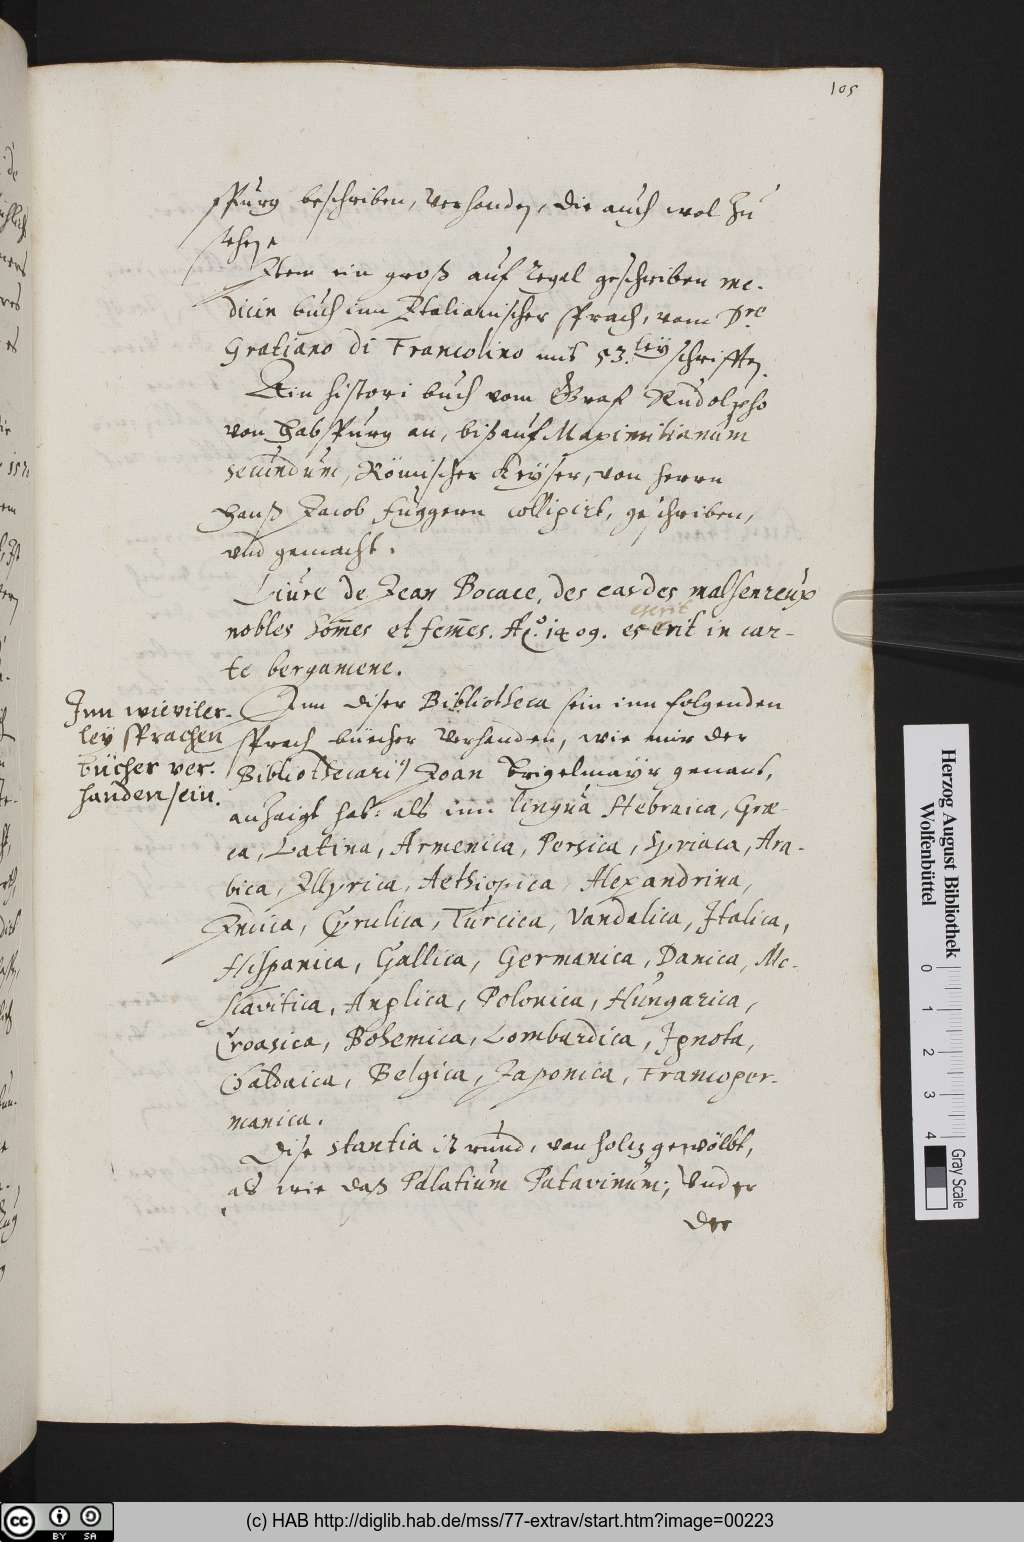 105
spurg beschriben, verhanden, die auch wol zu
sehen
Item ein groß auf Regal geschriben me-
dicin buch inn Italianischer sprach, vom Dre.
Gratiano di Francolino mit 53.ley schrifften.
Ain histori buch vom Graf Rudolpho
von Habspurg an, biß auf Maximilianum
secundum, Römischer Keyser, von herrn
Hanß Jacob Fuggern colligirt, geschriben,
vnd gemacht.
Liure de Jean Bocace, des cas des malheureux
escrit
nobles hom̅es et fem̅es. Ao. 1409. escrit in car-
te bergamene.
Inn wieviler-
ley sprachen
bücher ver-
handen sein.
Inn diser Bibliotheca sein inn folgenden
sprach büecher verhanden, wie mir der
Bibliothecarius Joan Brigelmayr genant,
anzaigt hat. als inn lingua Hebraica, Græ-
ca, Latina, Armenica, Persica, Syriaca, Ara-
bica, Illyrica, Aethiopica, Alexandrina,
Indica, Cyrulica, Turcica, Vandalica, Italica,
Hispanica, Gallica, Germanica, Danica, Mo-
scavitica, Anglica, Polonica, Hungarica,
Croasica, Bohemica, Lombardica, Ignota,
Chaldaica, Belgica, Japonica, Francoger-
manica.
Dise stantia ist rund, von holtz gewölbt,
als wie daß Palatium Patavinum; Vnder
der
Herzog August Bibliothek
Wolfenbüttel
0 1 2 3 4
Gray Scale
cc BY SA
(c) HAB http://diglib.hab.de/mss/77-extrav/start.htm?image=00223